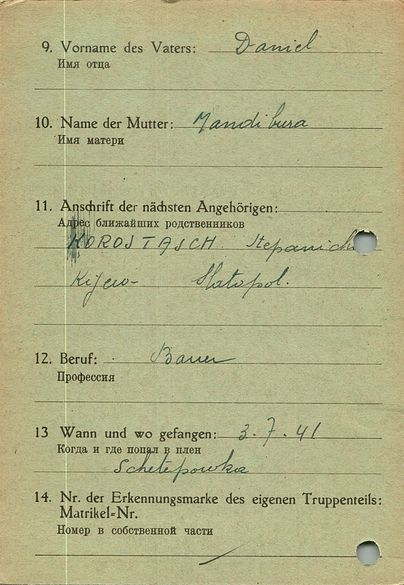 9. Vorname des Vaters: Daniel
Имя отца
10. Name der Mutter: Mandibura
Имя матери
11. Anschrift der nächsten Angehörigen:
Адрес ближайших родственников
KOROSTASCH
Kijew- Slatopol.
12. Beruf: Bauer
Профессия
13 Wann und wo gefangen: 3.7.41
Когда и где попал в плен
Schetepowka
14. Nr. der Erkennungsmarke des eigenen Truppenteils:
Matrikel=Nr.
Номер в собственной части